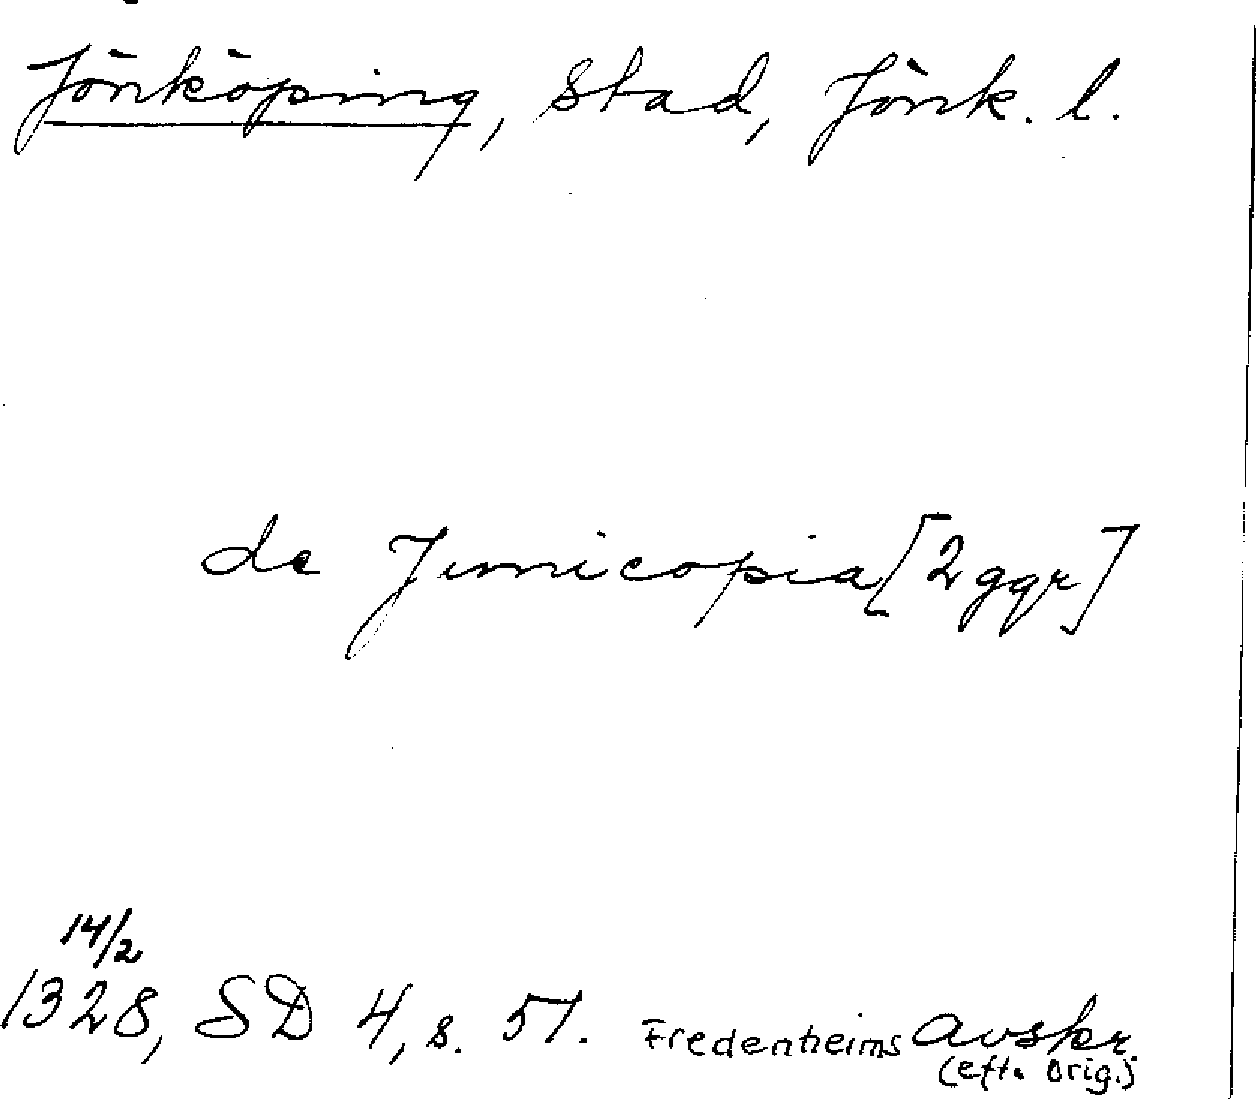 Jönköping, stad, Jönk. l.
de Junicopia [2 ggr]
14/2
1328, SD 4, s. 51. Fredenheims avskr.
(eft. orig.)